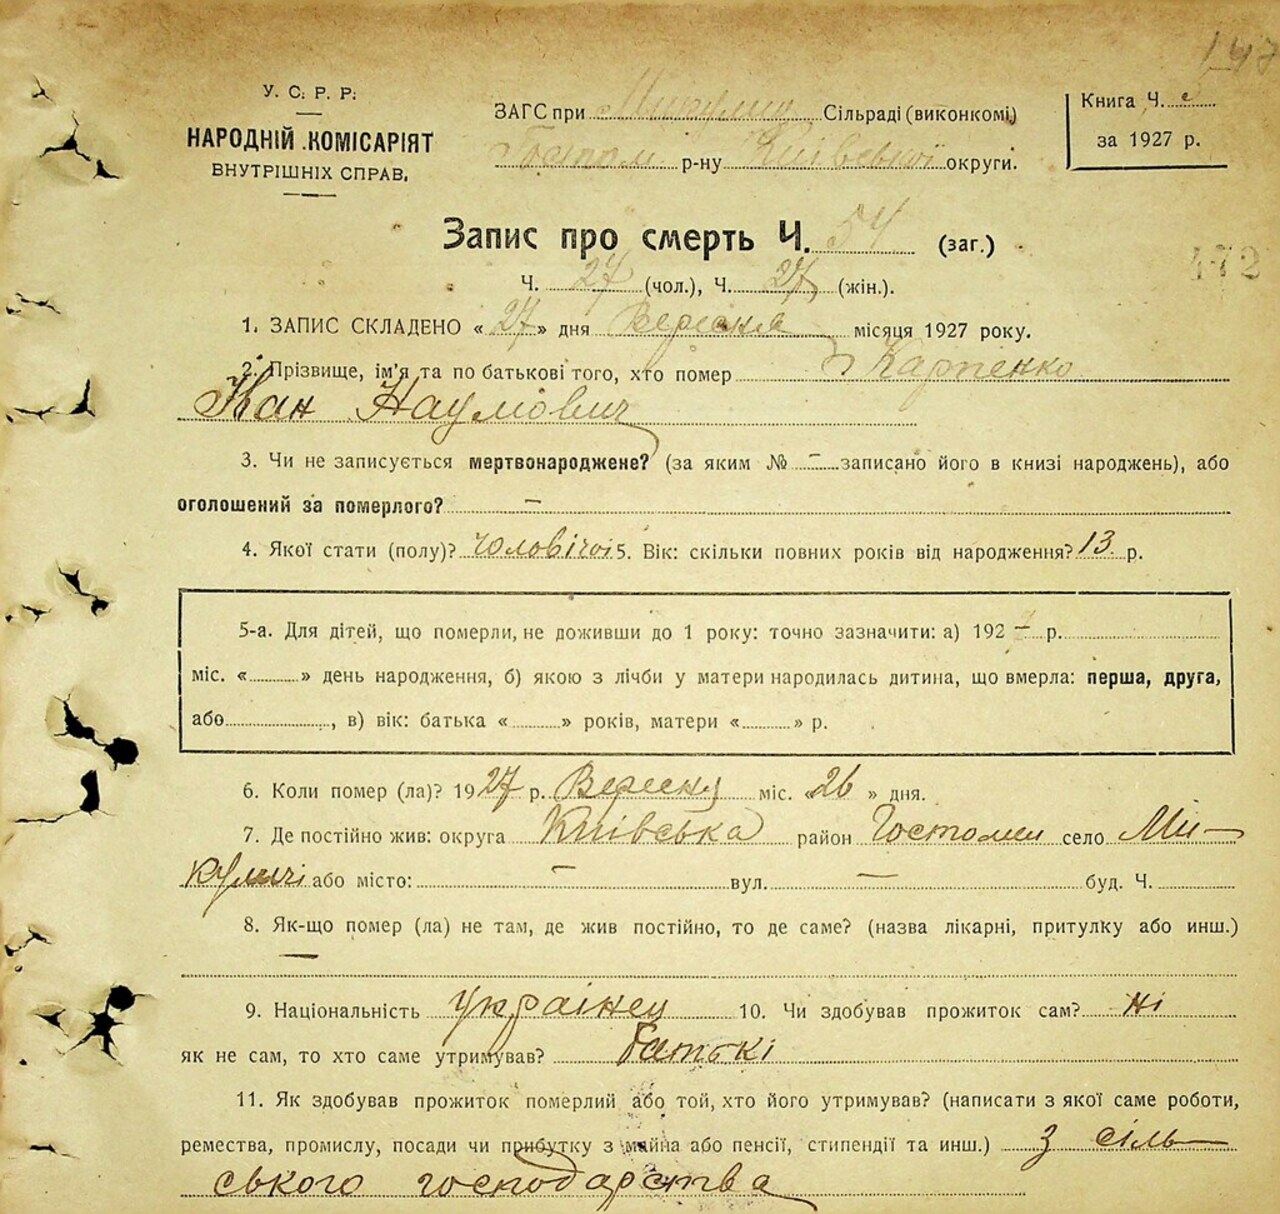 147
У. С. Р. Р.
НАРОДНІЙ КОМІСАРІЯТ
ВНУТРІШНІХ СПРАВ.
ЗАГС при Микулич Сільраді (виконкомі)
Гостом р-ну Київської округи.
Книга Ч. 3
за 1927 р.
Запис про смерть Ч. 54 (заг.)
472
Ч. 27 (чол.), Ч. 27 (жін.).
1. ЗАПИС СКЛАДЕНО « 27 » дня Вересня місяця 1927 року.
2. Прізвище, ім'я та по батькові того, хто помер Карпенко
Іван Наумович
3. Чи не записується мертвонароджене? (за яким № – записано його в книзі народжень), або
оголошений за померлого? –
4. Якої стати (полу)? чоловічої 5. Вік: скільки повних років від народження? 13 р.
5-а. Для дітей, що померли, не доживши до 1 року: точно зазначити: а) 192 – р.
міс. « » день народження, б) якою з лічби у матери народилась дитина, що вмерла: перша, друга,
або , в) вік: батька « » років, матери « » р.
6. Коли помер (ла)? 1927 р. Вересня міс. « 26 » дня.
7. Де постійно жив: округа Київська район Гостомел село Ми-
куличі або місто: – вул. – буд. Ч.
8. Як-що помер (ла) не там, де жив постійно, то де саме? (назва лікарні, притулку або инш.)
–
9. Національність українец 10. Чи здобував прожиток сам? ні
як не сам, то хто саме утримував? Батькі
11. Як здобував прожиток померлий або той, хто його утримував? (написати з якої саме роботи,
ремества, промислу, посади чи прибутку з майна або пенсії, стипендії та инш.) З сіль-
ського господарства